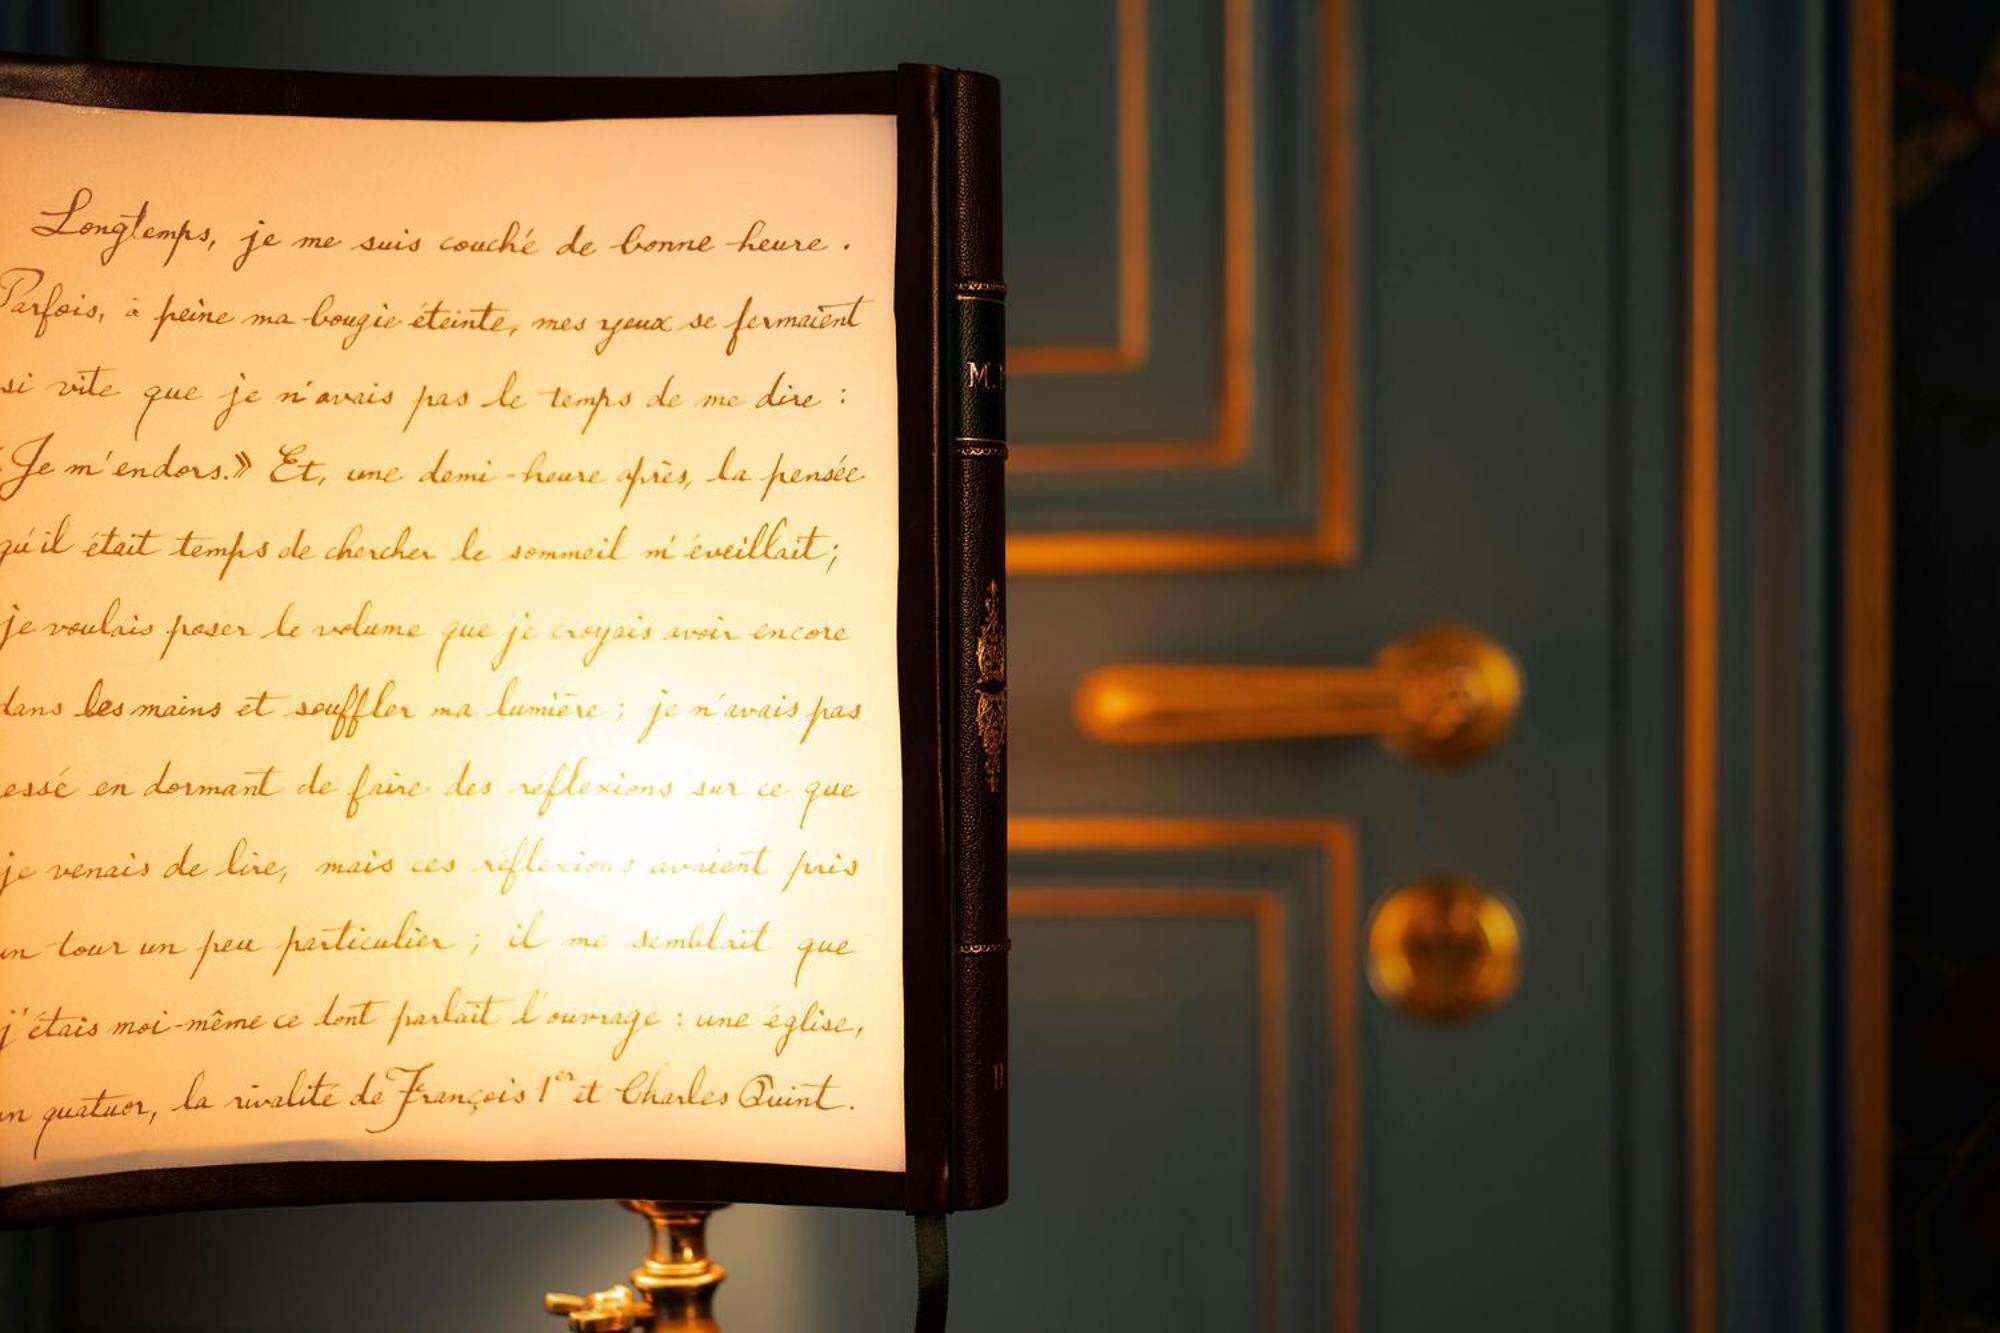 Longtemps, je me suis couché de bonne heure.
Parfois, à peine ma bougie éteinte, mes yeux se fermaient
si vite que je n'avais pas le temps de me dire :
«Je m'endors.» Et, une demi-heure après, la pensée
qu'il était temps de chercher le sommeil m'éveillait;
je voulais poser le volume que je croyais avoir encore
dans les mains et souffler ma lumière ; je n'avais pas
essé en dormant de faire des réflexions sur ce que
je venais de lire, mais ces réflexions avaient pris
un tour un peu particulier ; il me semblait que
j'étais moi-même ce dont parlait l'ouvrage : une église,
un quatuor, la rivalité de François 1er et Charles Quint.
M.